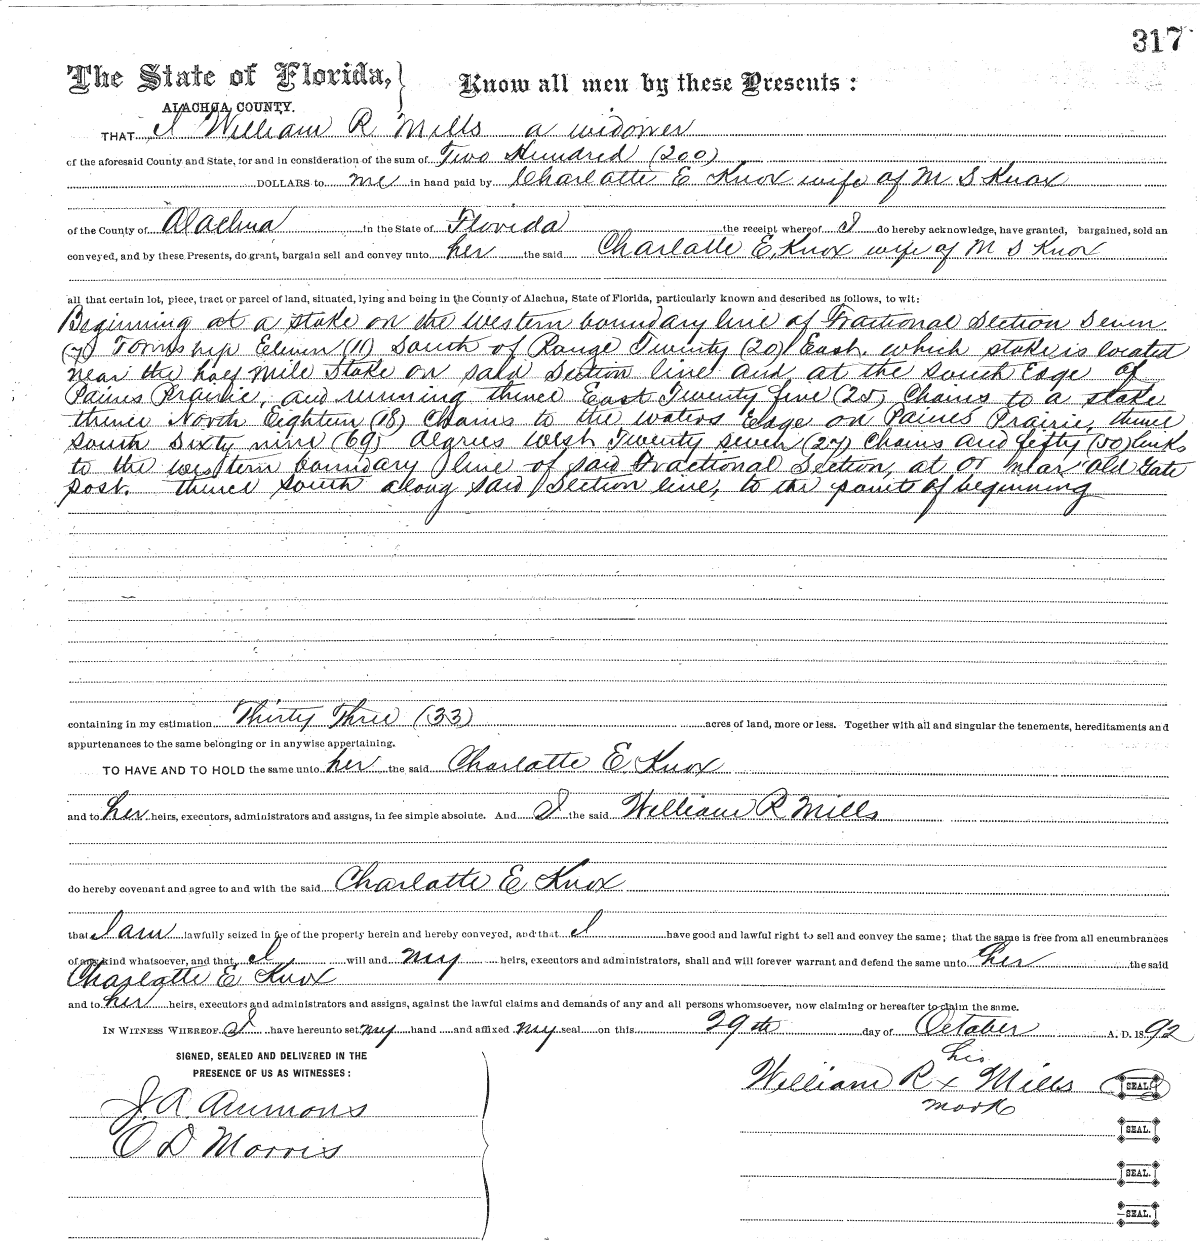 317
The State of Florida,
ALACHUA COUNTY.
Know all men by these Presents :
THAT I William R Mills a widower
of the aforesaid County and State, for and in consideration of the sum of Two Hundred (200)
DOLLARS to me in hand paid by Charlotte E Knox wife of M S Knox
of the County of Alachua in the State of Florida the receipt whereof I do hereby acknowledge, have granted, bargained, sold an
conveyed, and by these Presents, do grant, bargain sell and convey unto her the said Charlotte E, Knox wife of M S Knox
all that certain lot, piece, tract or parcel of land, situated, lying and being in the County of Alachua, State of Florida, particularly known and described as follows, to wit:
Beginning at a stake on the western boundary line of Fractional Section Seven
(7) Township Eleven (11) South of Range Twenty (20) East. which stake is located
near the half mile Stake on said Section line and at the South Edge of
Paines Prairie, and running thence East Twenty five (25) Chains to a stake
thence North Eighteen (18) Chains to the waters Edge on Paines Prairie, thence
South Sixty nine (69) degrees West Twenty seven (27) Chains and fifty (50) links
to the western boundary line of said Fractional Section, at or near Old Gate
post. thence South along said Section line, to the point of beginning
containing in my estimation Thirty Three (33) acres of land, more or less. Together with all and singular the tenements, hereditaments and
appurtenances to the same belonging or in anywise appertaining.
TO HAVE AND TO HOLD the same unto her the said Charlotte E Knox
and to her heirs, executors, administrators and assigns, in fee simple absolute. And I the said William R Mills
do hereby covenant and agree to and with the said Charlotte E Knox
that I am lawfully seized in fee of the property herein and hereby conveyed, and that I have good and lawful right to sell and convey the same; that the same is free from all encumbrances
of any kind whatsoever, and that I will and my heirs, executors and administrators, shall and will forever warrant and defend the same unto her the said
Charlotte E Knox
and to her heirs, executors and administrators and assigns, against the lawful claims and demands of any and all persons whomsoever, now claiming or hereafter to claim the same.
IN WITNESS WHEREOF I have hereunto set my hand and affixed my seal on this 29th day of October A. D. 1892
SIGNED, SEALED AND DELIVERED IN THE
PRESENCE OF US AS WITNESSES:
his
William R x Mills SEAL.
mark
J. A. Ammons
O D Morris
SEAL.
SEAL.
SEAL.